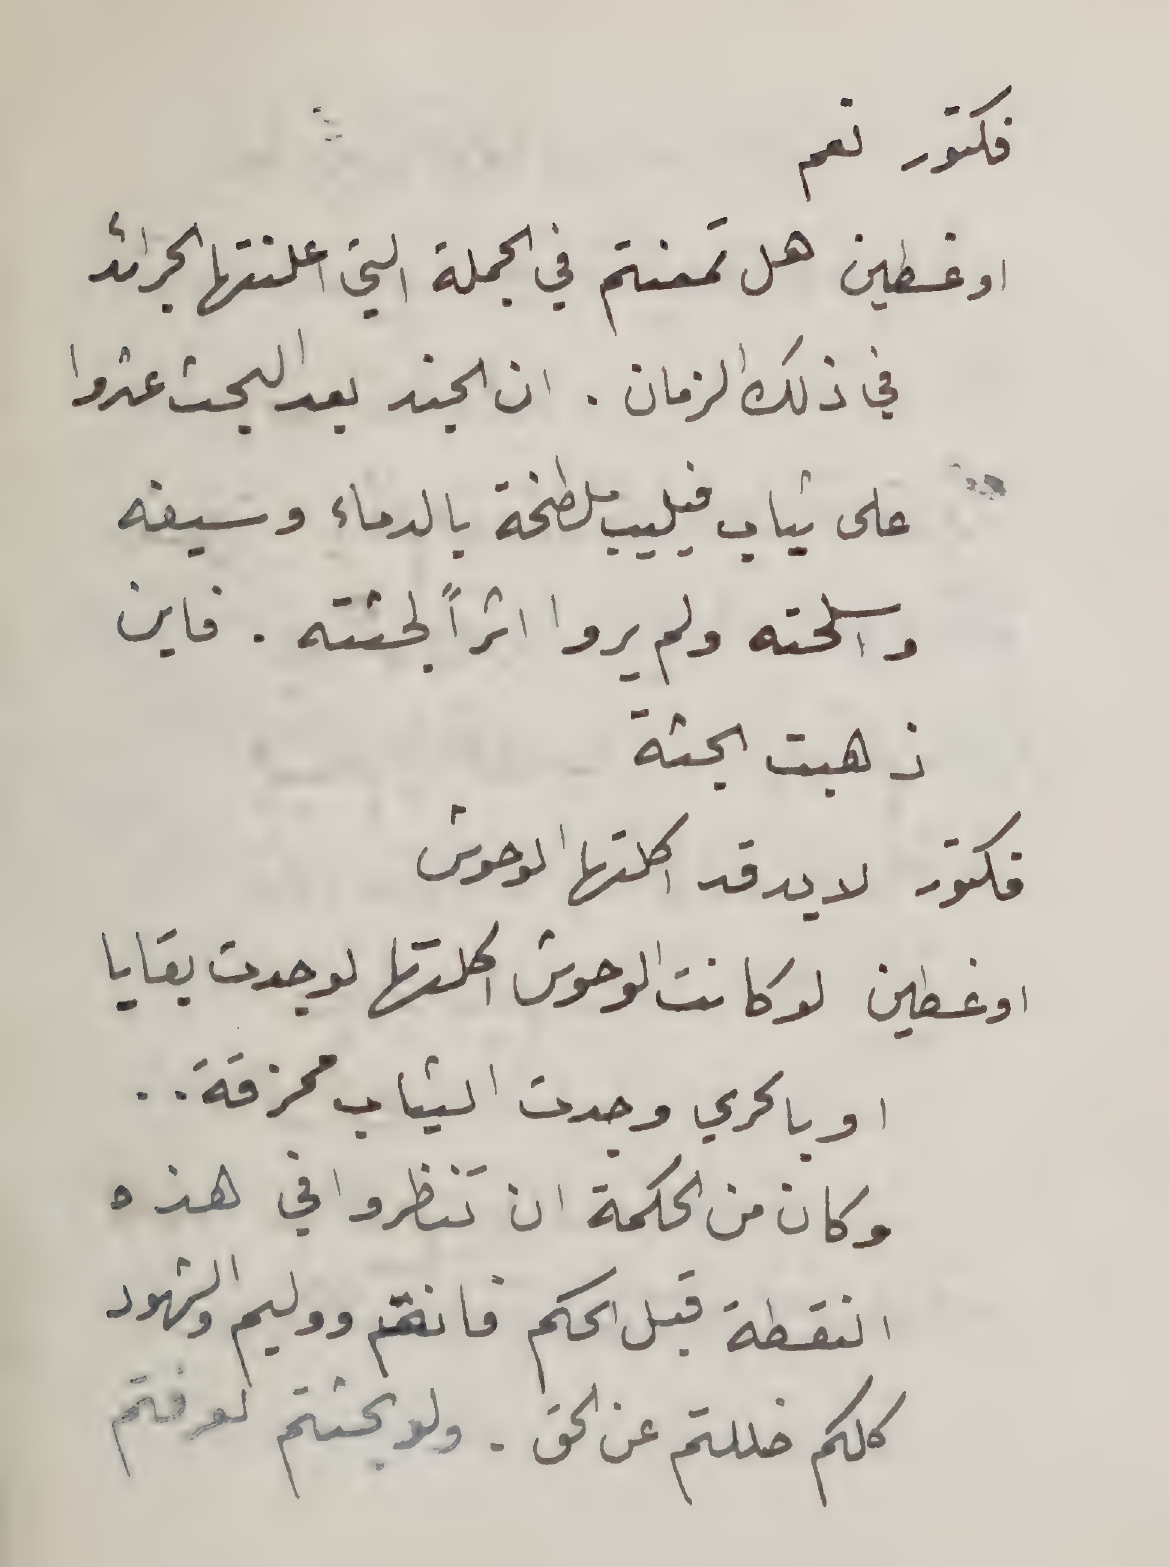 فكتور نعم
اوغسطين هل تمعنتم في الجملة التي اعلنتها الجرائد
في ذلك الزمان . ان الجند بعد البحث عثروا
على ثياب فيليب ملطخة بالدماء وسيفه
واسلحته ولم يروا اثراً لجثته . فاين
ذهبت الجثة
فكتور لا بد قد اكلتها الوحوش
اوغسطين لو كانت الوحوش اكلتها لوجدت بقايا
او بالحري وجدت الثياب ممزقة . .
وكان من الحكمة ان تنظروا في هذه
النقطة قبل الحكم فانتم ووليم والشهود
كلكم ضللتم عن الحق . ولو بحثتم لعرفتم